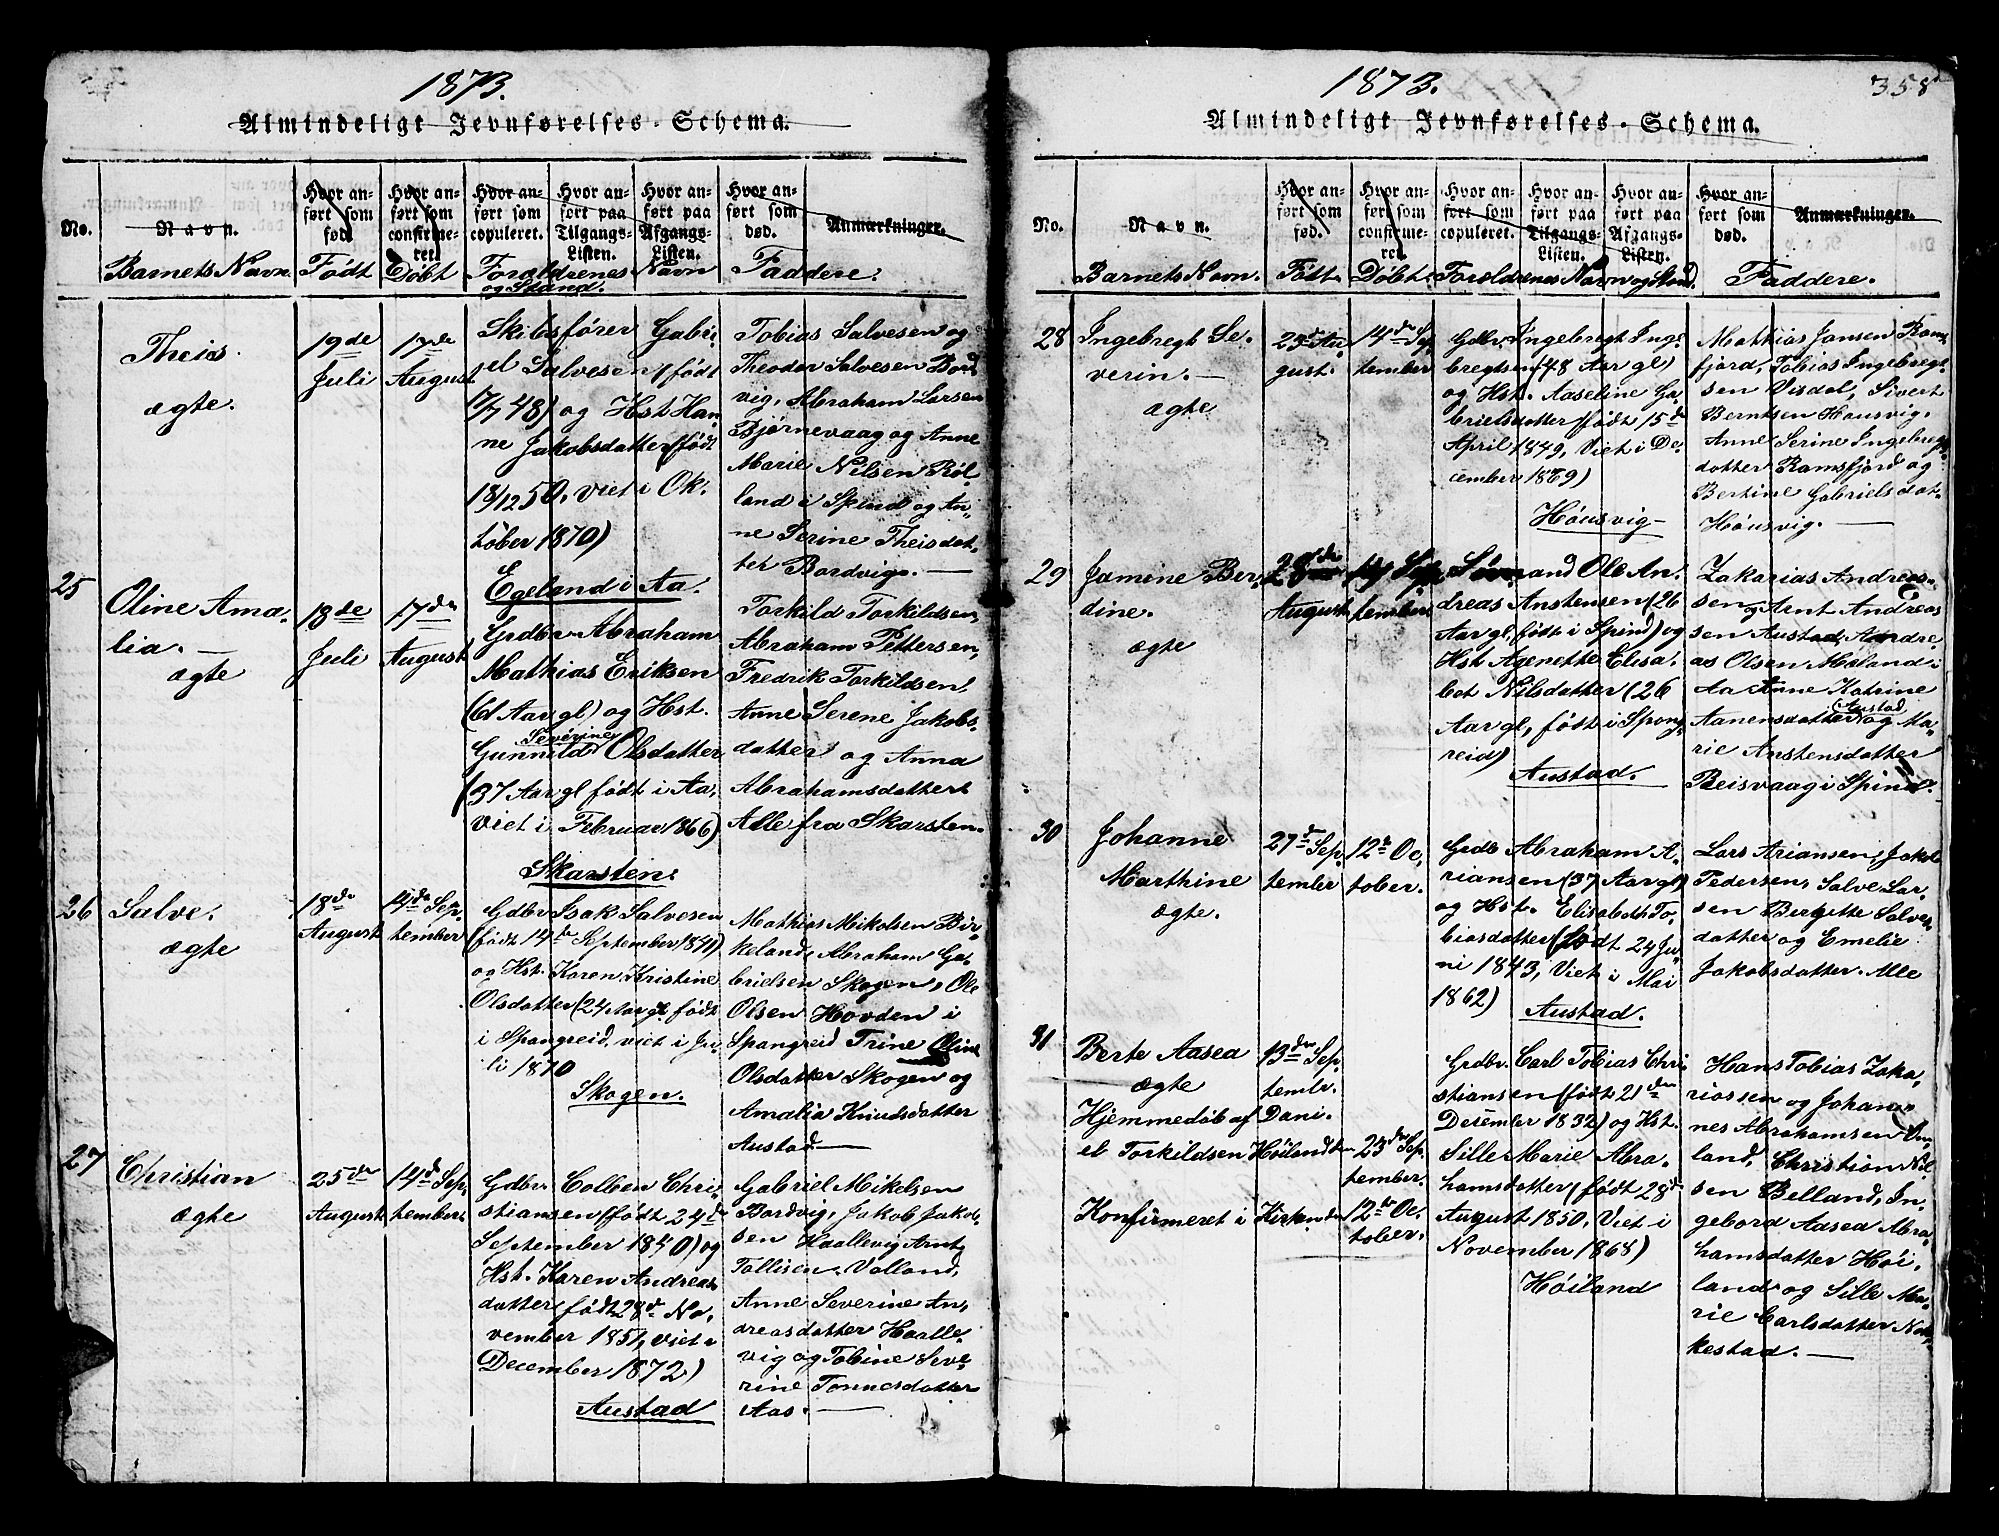 1873.
Almindeligt Jevnførelses-Schema.
No.
Navn.
Hvor anført som født
Hvor anført som confirmeret.
Hvor anført som copuleret.
Hvor anført paa Tilgangs-Listen.
Hvor anført paa Afgangs-Listen.
Hvor anført som død.
Anmærkninger.
Barnets Navn
Født
Døbt
Forældrenes Navn
og Stand.
Faddere.
Theis.
ægte.
19de
Juli
17de
August
Skibsfører Gabri-
el Salvesen (født
17/7 48) og Hst Han-
ne Jakobsdatter (født
18/12 50, viet i Ok-
tober 1870)
Egeland i Aa.
Tobias Salvesen og
Theodor Salvesen Bord
vig, Abraham Larsen
Bjørnevaag og Anne
Marie Nilsen Røl-
land i Spind og An-
ne Serine Theisdat-
ter Bordvig.
25
Oline Ama-
lia.
ægte
18de
Juli
17de
August
Grdbr Abraham
Mathias Eriksen
(61 Aar gl) og Hst.
Severine
Gunnild Olsdatter
(37 Aar gl født i Aa,
viet i Februar 1866)
Skarsten.
Torkild Torkildsen,
Abraham Pettersen,
Fredrik Torkildsen,
Anne Serene Jakobs-
datter og Anna
Abrahamsdatter
Alle fra Skarsten.
26
Salve.
ægte
18de
August
14de Sep-
tember
Gdbr Isak Salvesen
(født 14de September 1841)
og Hst. Karen Kristine
Olsdatter (24 Aar gl født
i Spangreid, viet i Ju-
li 1870
Skogen.
Mathias Mikalsen Bir-
keland, Abraham Ga-
brielsen Skogen, Ole
Olsen Hovden i
Spangreid Trine Oline
Olsdatter Skogen og
Amalia Knudsdatter
Austad
27
Christian
ægte
25de
August
14de Sep-
tember
Gdbr Colben Chri-
stiansen (født 24de
September 1840) og
Hst. Karen Andreas-
datter født 28de No-
vember 1851, viet i
December 1872)
Austad
Gabriel Mikelsen
Bordvig, Jakob Jakob-
sen Haallevig Arnt
Tollisen Valland,
Anne Severine An-
dreasdatter Haalle-
vig og Tobine Seve-
rine Tønnesdatter
Aas.
1873.
358
Almindeligt Jevnførelses-Schema.
No.
Navn.
Hvor anført som fød.
Hvor anført som confirmeret.
Hvor anført som copuleret.
Hvor anført paa Tilgangs-Listen.
Hvor anført paa Afgangs-Listen.
Hvor anført som død.
Anmærkninger.
Barnets Navn.
Født
Døbt
Forældrenes Navn og Stand
Faddere.
28
Ingebregt Se-
verin.
ægte
23d Au-
gust.
14de Sep-
tember
Gdbr Ingebregt Inge-
bregtsen (48 Aar gl)
og Hst. Aaseline Ga-
brielsdatter (født 15de
April 1849, Viet i De-
cember 1869)
Høusvig
Mathias Jansen Rams-
fjord, Tobias Ingebregt-
sen Visdal, Sivert
Berntsen Housvig.
Anne Serine Ingebregts-
datter Ramsfjord og
Bertine Gabrielsdat-
Høusvig.
29
Jamine Ber-
dine.
ægte
28de
August
14 Sep-
tember
Sømand Ole An-
dreas Anstensen (26
Aar gl, født i Spind) og
Hst Agenette Elisa-
bet Nilsdatter (26
Aar gl, født i Spang-
reid)
Austad.
Zakarias Andreas-
sen og Arnt Andreas
sen Austad Andre-
as Olsen Møland i
Aa Anne Katrine
Austad
Aanensdatter og Ma-
rie Anstensdatter
Reisvaag i Spind.
30
Johanne
Marthine
ægte.
27d Sep-
tember
12te Oc-
tober.
Grdbr Abraham A-
riansen (37 Aar gl)
og Hst. Elisabeth To-
biasdatter (født 24 Ju-
ni 1843, Viet i Mai
1862)
Austad.
Lars Ariansen, Jakob
Pedersen, Salve Lar-
sen Bergitte Salves
datter og Emelie
Jakobsdatter. Alle
31
Berte Aasea
ægte
Hjemmedøb af Dani-
el Torkildsen Høiland den
Konfirmeret i Kirken den
13de Sep-
tembr.
23de Sep-
tember.
12te Oc-
tober.
Grdbr. Carl Tobias Chri-
stiansen (født 21de
Desember 1832) og Hst.
Sille Marie Abra-
hamsdatter (født 28de
August 1850, Viet i
November 1868)
Høiland
Hans Tobias Zaka-
riassen og Johan-
nes Abrahamsen
land, Christian Nil-
sen Belland, In-
gebord Aasea Abra-
hamsdatter Høi-
land og Sille Ma-
rie Carlsdatter
kestad.